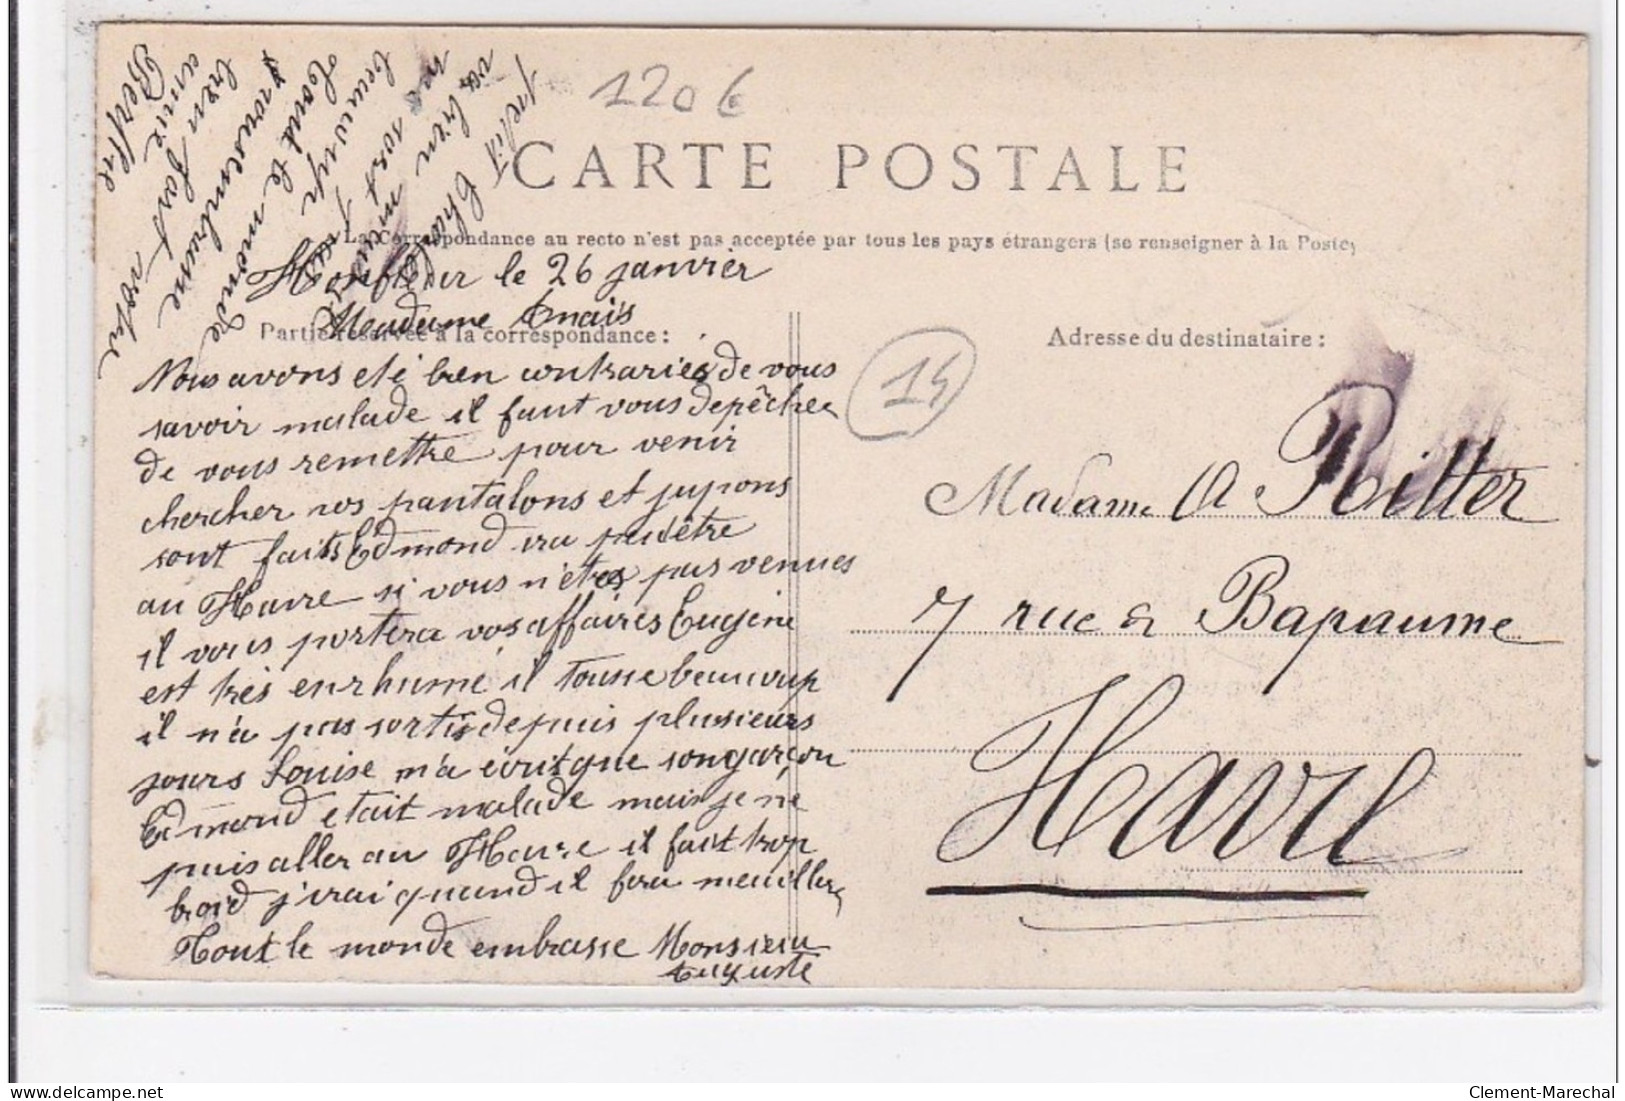 120 €
CARTE POSTALE
La Correspondance au recto n'est pas acceptée par tous les pays étrangers (se renseigner à la Poste)
Honfleur le 26 janvier
Madame Anaïs
Partie réservée à la correspondance :
Adresse du destinataire :
14
Nous avons été bien contrariés de vous
savoir malade il faut vous depêcher
de vous remettre pour venir
chercher vos pantalons et jupons
sont faits Edmond ira peutêtre
au Havre si vous n'êtes pas venues
il vous portera vos affaires Eugène
est très enrhumé il tousse beaucoup
il n'a pas sortis depuis plusieurs
jours Louise m'a écrit que son garçon
Edmond etait malade mais je ne
puis aller au Havre il fait trop
froid j'irai quand il fera meuilleur
Tout le monde embrasse Monsieur
Auguste
petit Charles
va bien
tout le monde
vous embrasse
bien fort votre
amie
Berthe
Madame A Ritter
7 rue de Bapaume
Havre
Clement-Marechal